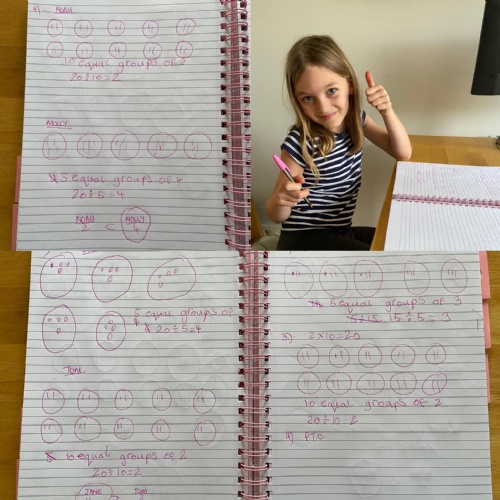 NOAH
10 equal groups of 2
20÷10=2
MOLLY
5 equal groups of 4
20÷5=4
NOAH MOLLY
2 < 4
5 equal groups of
20÷5=4
TOM
10 equal groups of 2
20÷10=2
JANE TOM
5 equal groups of 3
15÷5=3
3) 2×10=20
10 equal groups of 2
20÷10=2
4) P.T.O